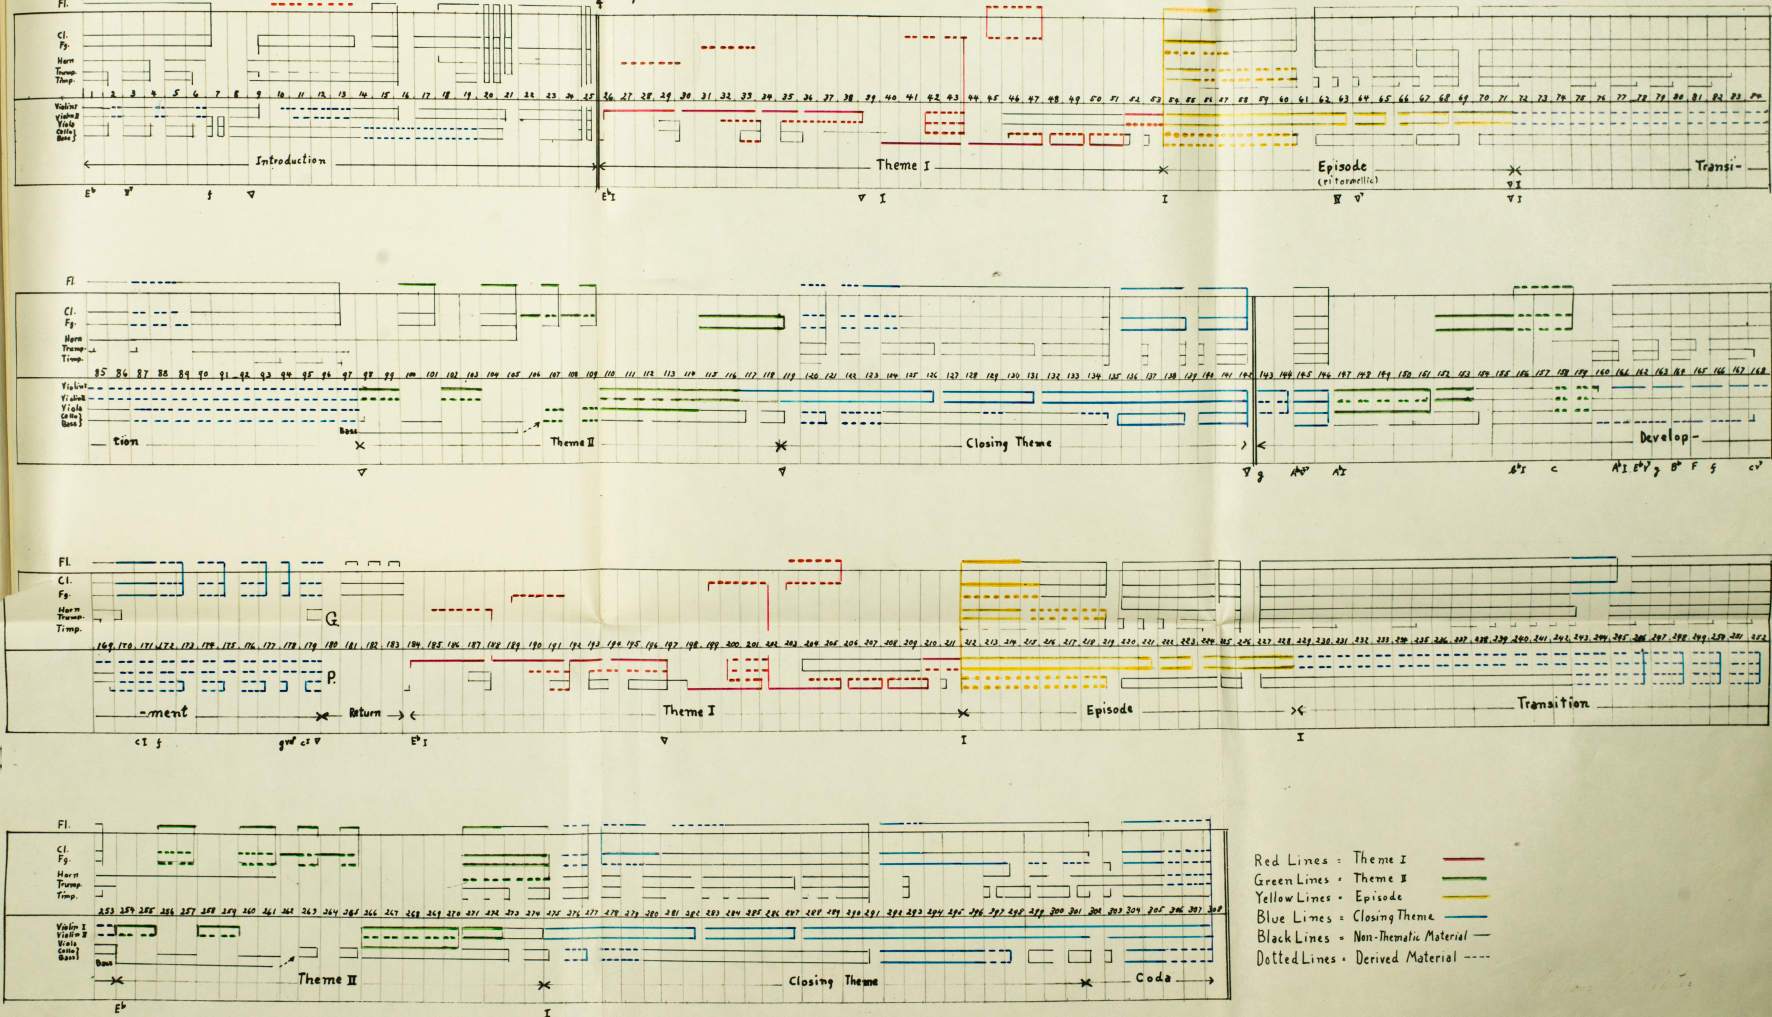 Fl.
Cl.
Fg.
Horn
Trump.
Timp.
1 2 3 4 5 6 7 8 9 10 11 12 13 14 15 16 17 18 19 20 21 22 23 24 25 26 27 28 29 30 31 32 33 34 35 36 37 38 39 40 41 42 43 44 45 46 47 48 49 50 51 52 53 54 55 56 57 58 59 60 61 62 63 64 65 66 67 68 69 70 71 72 73 74 75 76 77 78 79 80 81 82 83 84
Violin I
Violin II
Viola
Cello }
Bass }
Introduction Theme I Episode Transi-
(ritornellic)
E♭ f V E♭ I V I I IV V⁷ V I
Fl.
Cl.
Fg.
Horn
Trump.
Timp.
85 86 87 88 89 90 91 92 93 94 95 96 97 98 99 100 101 102 103 104 105 106 107 108 109 110 111 112 113 114 115 116 117 118 119 120 121 122 123 124 125 126 127 128 129 130 131 132 133 134 135 136 137 138 139 140 141 142 143 144 145 146 147 148 149 150 151 152 153 154 155 156 157 158 159 160 161 162 163 164 165 166 167 168
Violin I
Violin II
Viola
Cello }
Bass }
Bass
tion Theme II Closing Theme Develop-
V V V g A♭ I c A♭ I E♭ V⁷ g B♭ F f
Fl.
Cl.
Fg.
Horn
Trump.
Timp.
G.
169 170 171 172 173 174 175 176 177 178 179 180 181 182 183 184 185 186 187 188 189 190 191 192 193 194 195 196 197 198 199 200 201 202 203 204 205 206 207 208 209 210 211 212 213 214 215 216 217 218 219 220 221 222 223 224 225 226 227 228 229 230 231 232 233 234 235 236 237 238 239 240 241 242 243 244 245 246 247 248 249 250 251 252
P.
-ment Return Theme I Episode Transition
c I f c I V E♭ I V I I
Fl.
Cl.
Fg.
Horn
Trump.
Timp.
253 254 255 256 257 258 259 260 261 262 263 264 265 266 267 268 269 270 271 272 273 274 275 276 277 278 279 280 281 282 283 284 285 286 287 288 289 290 291 292 293 294 295 296 297 298 299 300 301 302 303 304 305 306 307 308
Violin I
Violin II
Viola
Cello }
Bass }
Bass
Theme II Closing Theme Coda
E♭ I
Red Lines = Theme I
Green Lines = Theme II
Yellow Lines = Episode
Blue Lines = Closing Theme
Black Lines = Non-Thematic Material
Dotted Lines = Derived Material